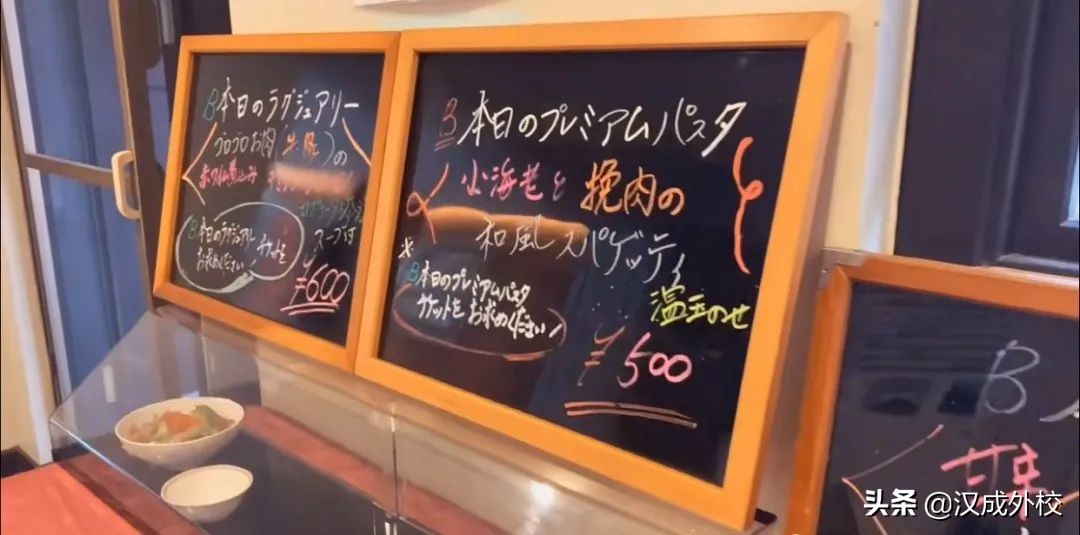 B本日のラグジュアリー
ゴロゴロお肉(牛・豚)の
赤ワイン煮込み
スープ付
B本日のラグジュアリー
チケットを
お求めください
¥600
B本日のプレミアムパスタ
小海老と挽肉の
和風スパゲッティ
温玉のせ
※
B本日のプレミアムパスタ
チケットをお求めください
¥500
B
头条 @汉成外校